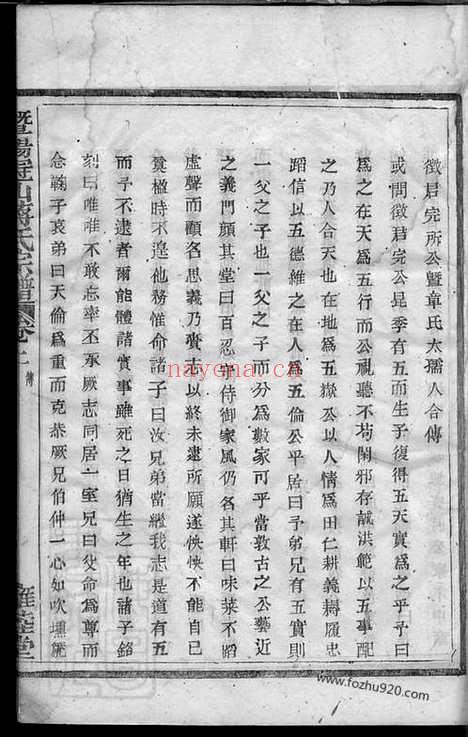 徵君完所公暨卓氏太孺人合傳
或問徵君完公昆季有五而生子復得五天實為之乎曰
為之在天為五行而公視聽不苟閑邪存誠洪範以五事配
之乃人合天也在地為五嶽公以人情為田仁耕義耨履忠
蹈信以五德維之在人為五倫公平居曰予弟兄有五實則
一父之子也一父之子而分為數家可乎當敦古之公藝近
之義門顏其堂曰百忍守侍御家風仍名其軒曰味菜不蹈
虛聲而顧名思義乃賫古以終未逮所願遂怏怏不能自已
奠楹時不遑他務惟命諸子曰汝兄弟當繼我志是道有五
而予不逮者爾能體諸實事雖死之日猶生之年也諸子銘
刻曰唯唯不敢忘率丕承厥志同居一室兄曰父命為尊而
念鞠子哀弟曰天倫為重而克恭厥兄伯仲一心如吹壎篪
暨陽芝山蔣氏宗譜 卷二 傳
雍睦堂
nayona.cn
https://www.fozhu920.com/